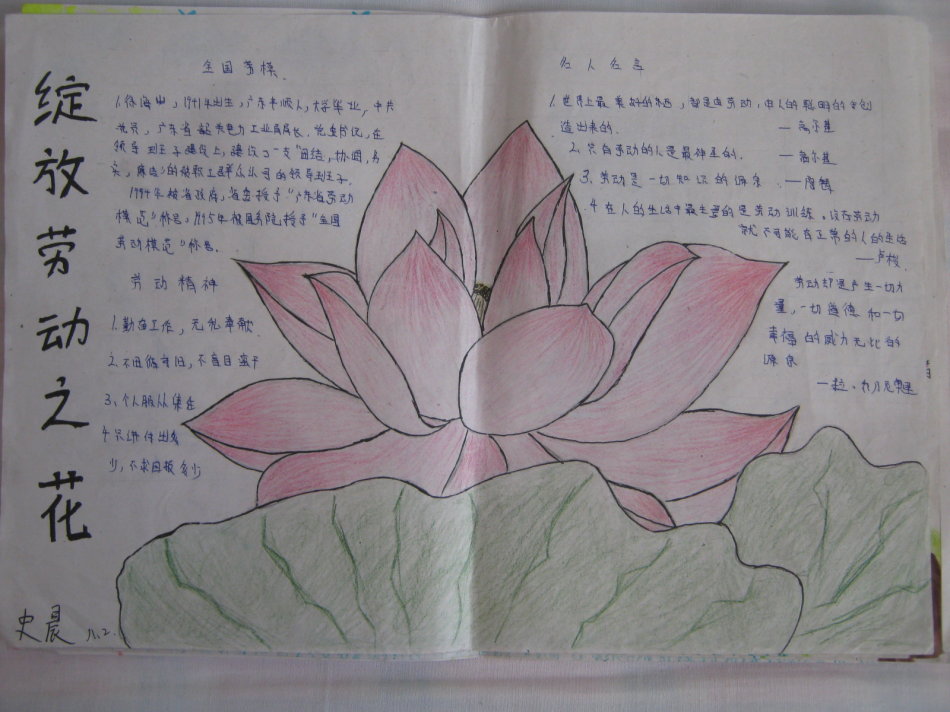 绽放劳动之花
全国劳模
1.徐海山,1941年出生,广东丰顺人,大学毕业,中共
党员,广东省韶关电力工业局局长、党委书记,在
领导班子建设上,建设了一支"团结,协调,务
实,廉洁"的被职工群众认可的领导班子.
1994年被省政府,省委授予"广东省劳动
模范"称号;1995年被国务院授予"全国
劳动模范"称号.
劳动精神
1.勤奋工作,无私奉献
2.不因循守旧,不盲目蛮干
3、个人服从集体
4只讲付出多
少,不求回报多少
史晨 八.2.
名人名言
1.世界上最美好的东西,都是由劳动,由人的聪明的手创
造出来的. —高尔基
2.只有劳动的人是最神圣的. —高尔基
3、劳动是一切知识的源泉.—陶铸
4在人的生活中最主要的是劳动训练.没有劳动
就不可能有正常的人的生活
—卢梭.
劳动却是产生一切力
量,一切道德和一切
幸福的威力无比的
源泉
—拉.乔凡尼奥里